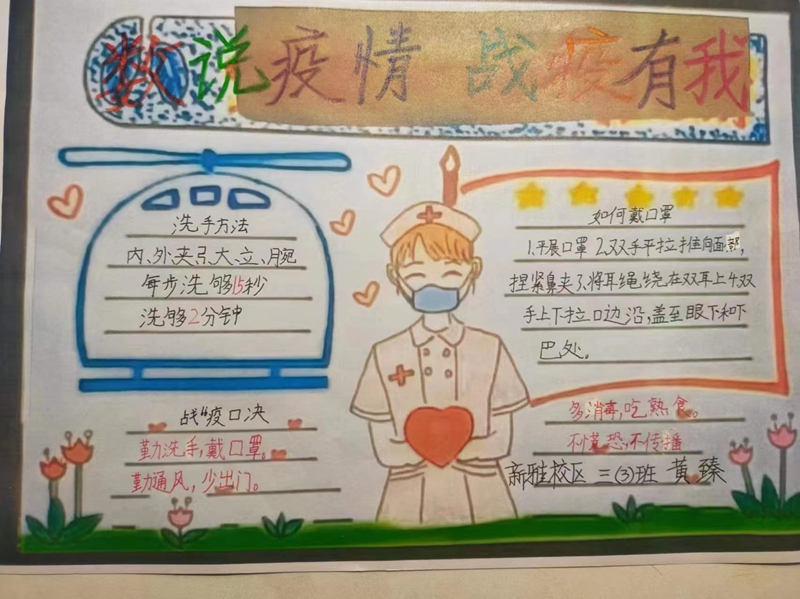 数说疫情 战疫有我
洗手方法
内、外、夹、弓、大、立、腕
每步洗够15秒
洗够2分钟
战"疫口决
勤洗手,戴口罩。
勤通风,少出门。
如何戴口罩
1.平展口罩2.双手平拉推向面部,
捏紧鼻夹3.将耳绳绕在双耳上4.双
手上下拉口边沿,盖至眼下和下
巴处。
多消毒,吃熟食。
不慌恐,不传播
新雅校区 三(3)班 黄臻